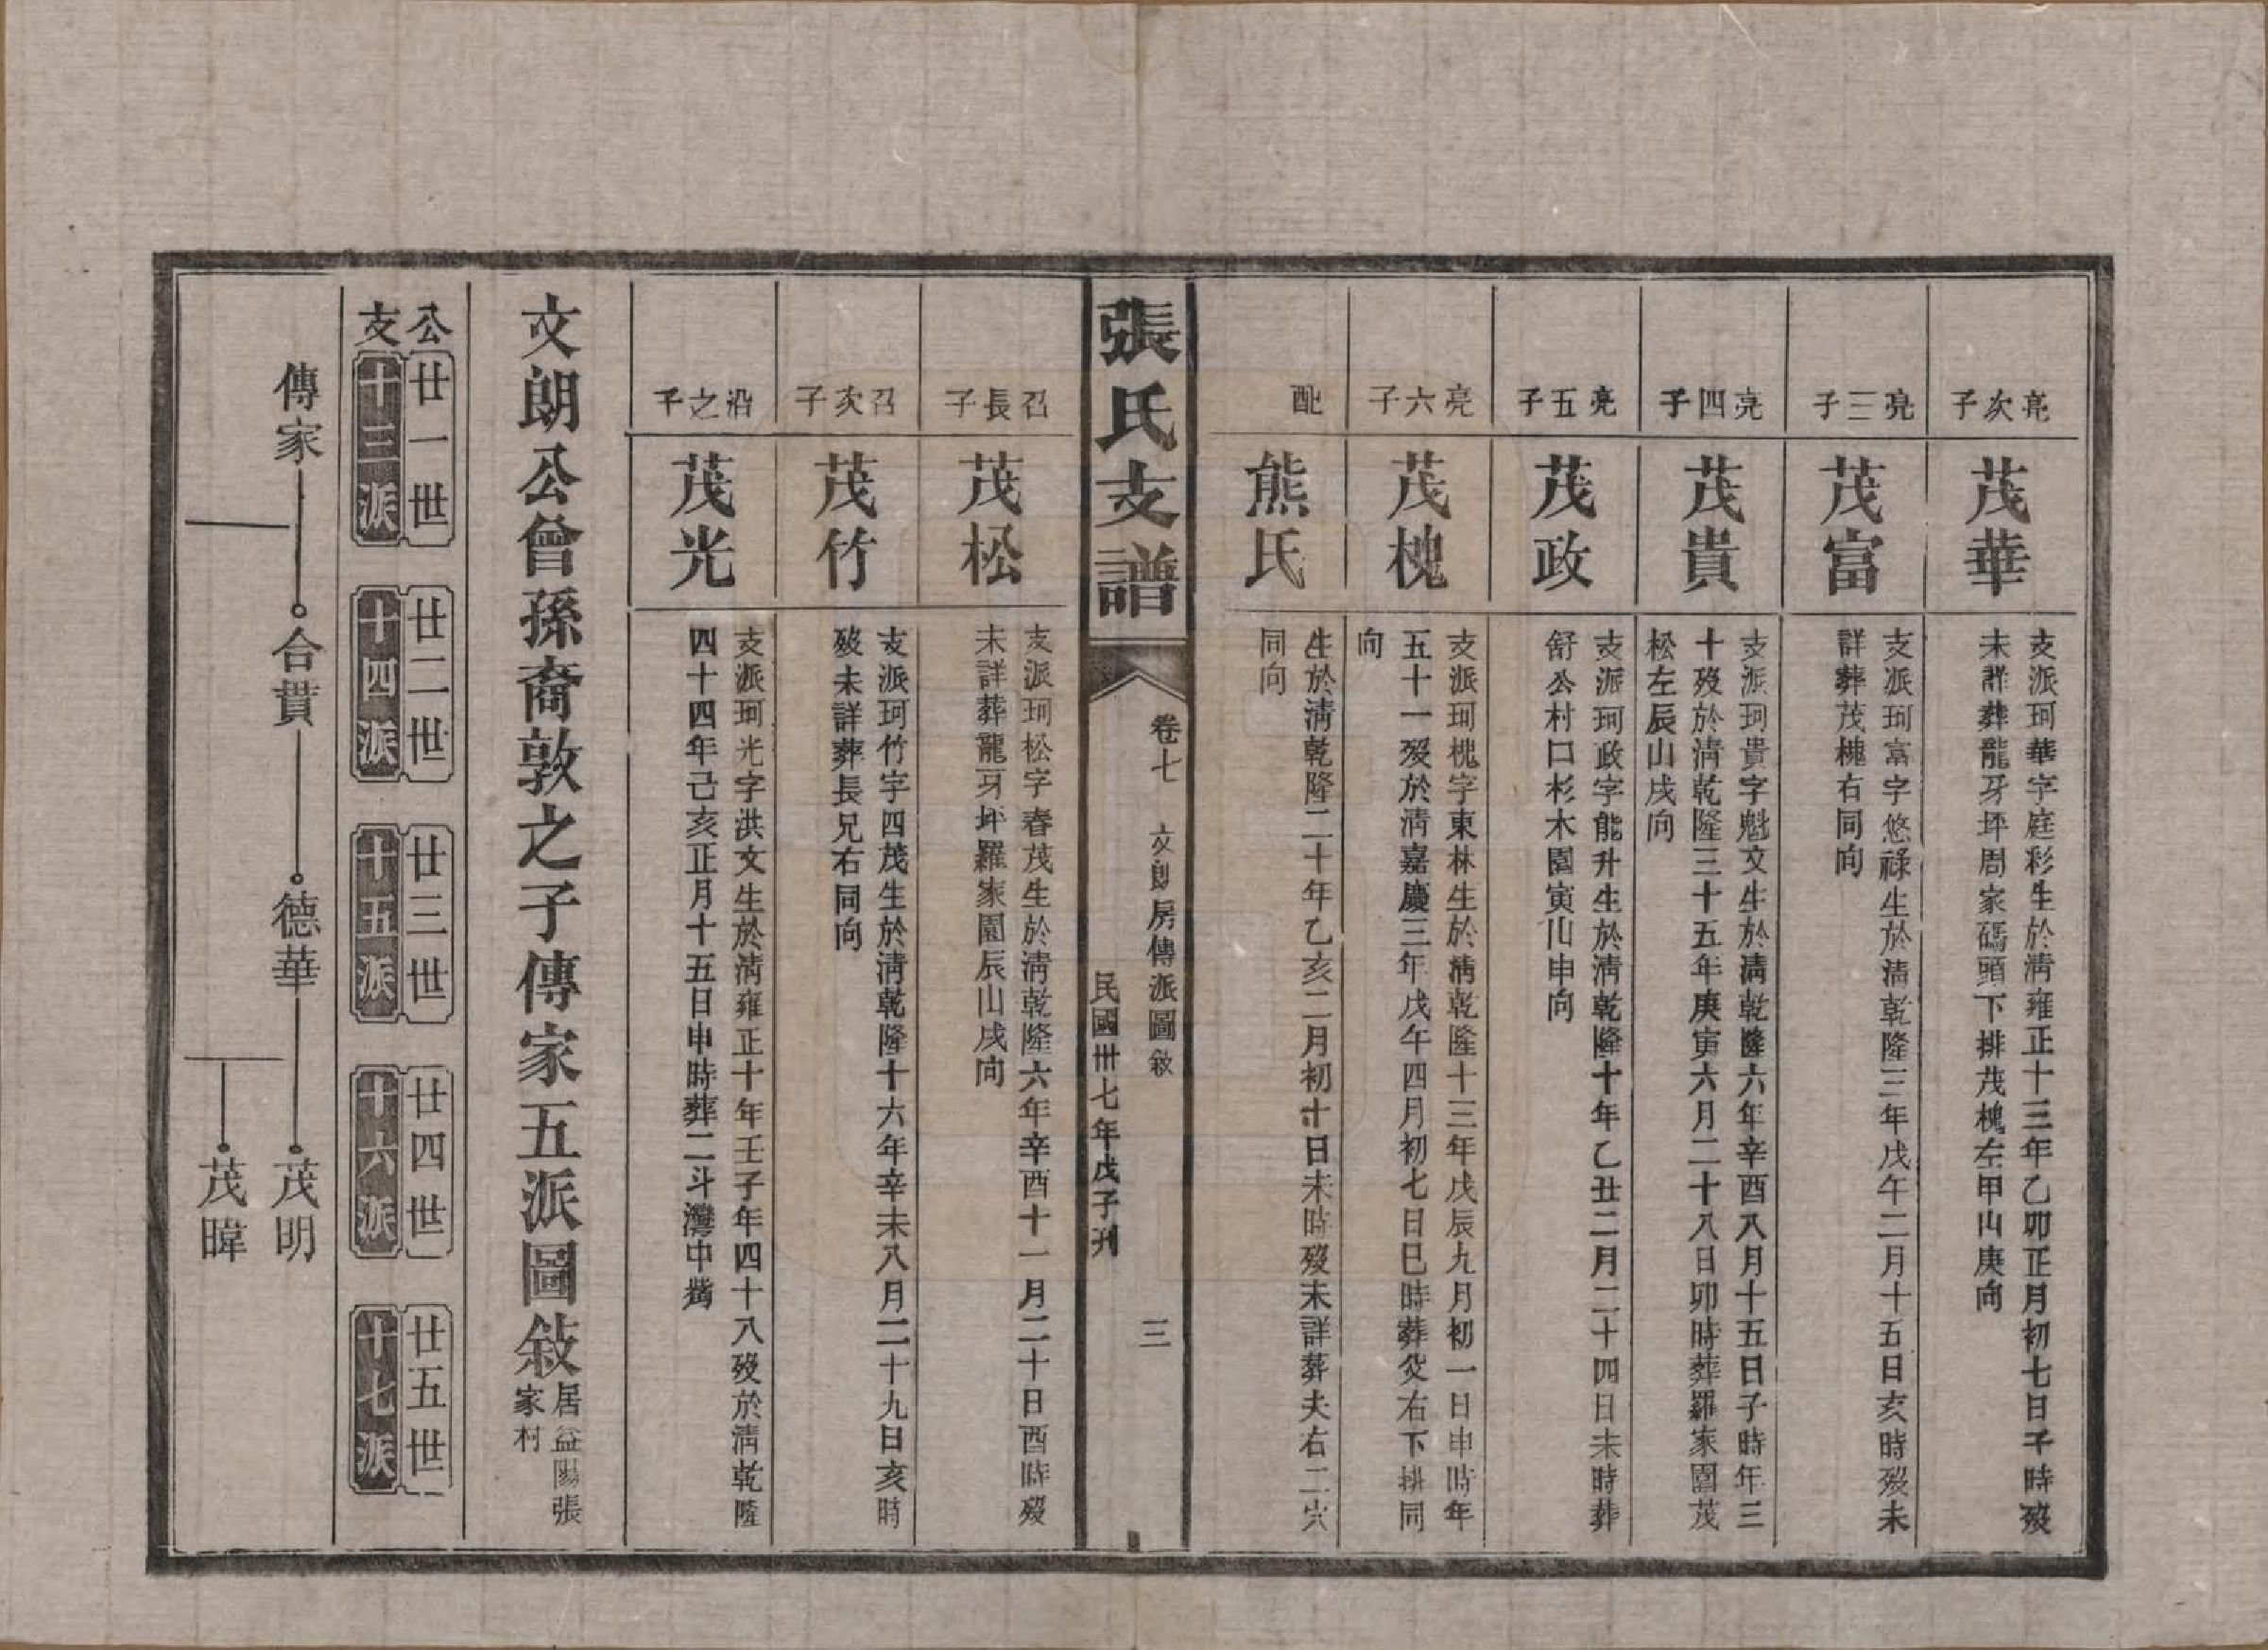 亮次子
茂華
支派珂華字庭彩生於清雍正十三年乙卯正月初七日子時歿
未詳葬龍牙坪周家碼頭下排茂槐左甲山庚向
亮三子
茂富
支派珂富字悠祿生於清乾隆三年戊午二月十五日亥時歿未
詳葬茂槐右同向
亮四子
茂貴
支派珂貴字魁文生於清乾隆六年辛酉八月十五日子時年三
十歿於清乾隆三十五年庚寅六月二十八日卯時葬羅家園茂
松左辰山戌向
亮五子
茂政
支派珂政字能升生於清乾隆十年乙丑二月二十四日未時葬
舒公村口杉木園寅山申向
亮六子
茂槐
支派珂槐字東林生於清乾隆十三年戊辰九月初一日申時年
五十一歿於清嘉慶三年戊午四月初七日巳時葬父右下排同
向
配
熊氏
生於清乾隆二十年乙亥二月初十日未時歿未詳葬夫右二穴
同向
張氏支譜
卷七 文朗房傳派圖敘 三
民國卅七年戊子刋
召長子
茂松
支派珂松字春茂生於清乾隆六年辛酉十一月二十日酉時歿
未詳葬龍牙坪羅家園辰山戌向
召次子
茂竹
支派珂竹字四茂生於清乾隆十六年辛未八月二十九日亥時
歿未詳葬長兄右同向
沿之子
茂光
支派珂光字洪文生於清雍正十年壬子年四十八歿於清乾隆
四十四年己亥正月十五日申時葬二斗灣中嘴
文朗公曾孫裔敦之子傳家五派圖敘
居益陽張
家村
公 廿一世 廿二世 廿三世 廿四世 廿五世
支 十三派 十四派 十五派 十六派 十七派
傳家 合貫 德華 茂明
茂暐